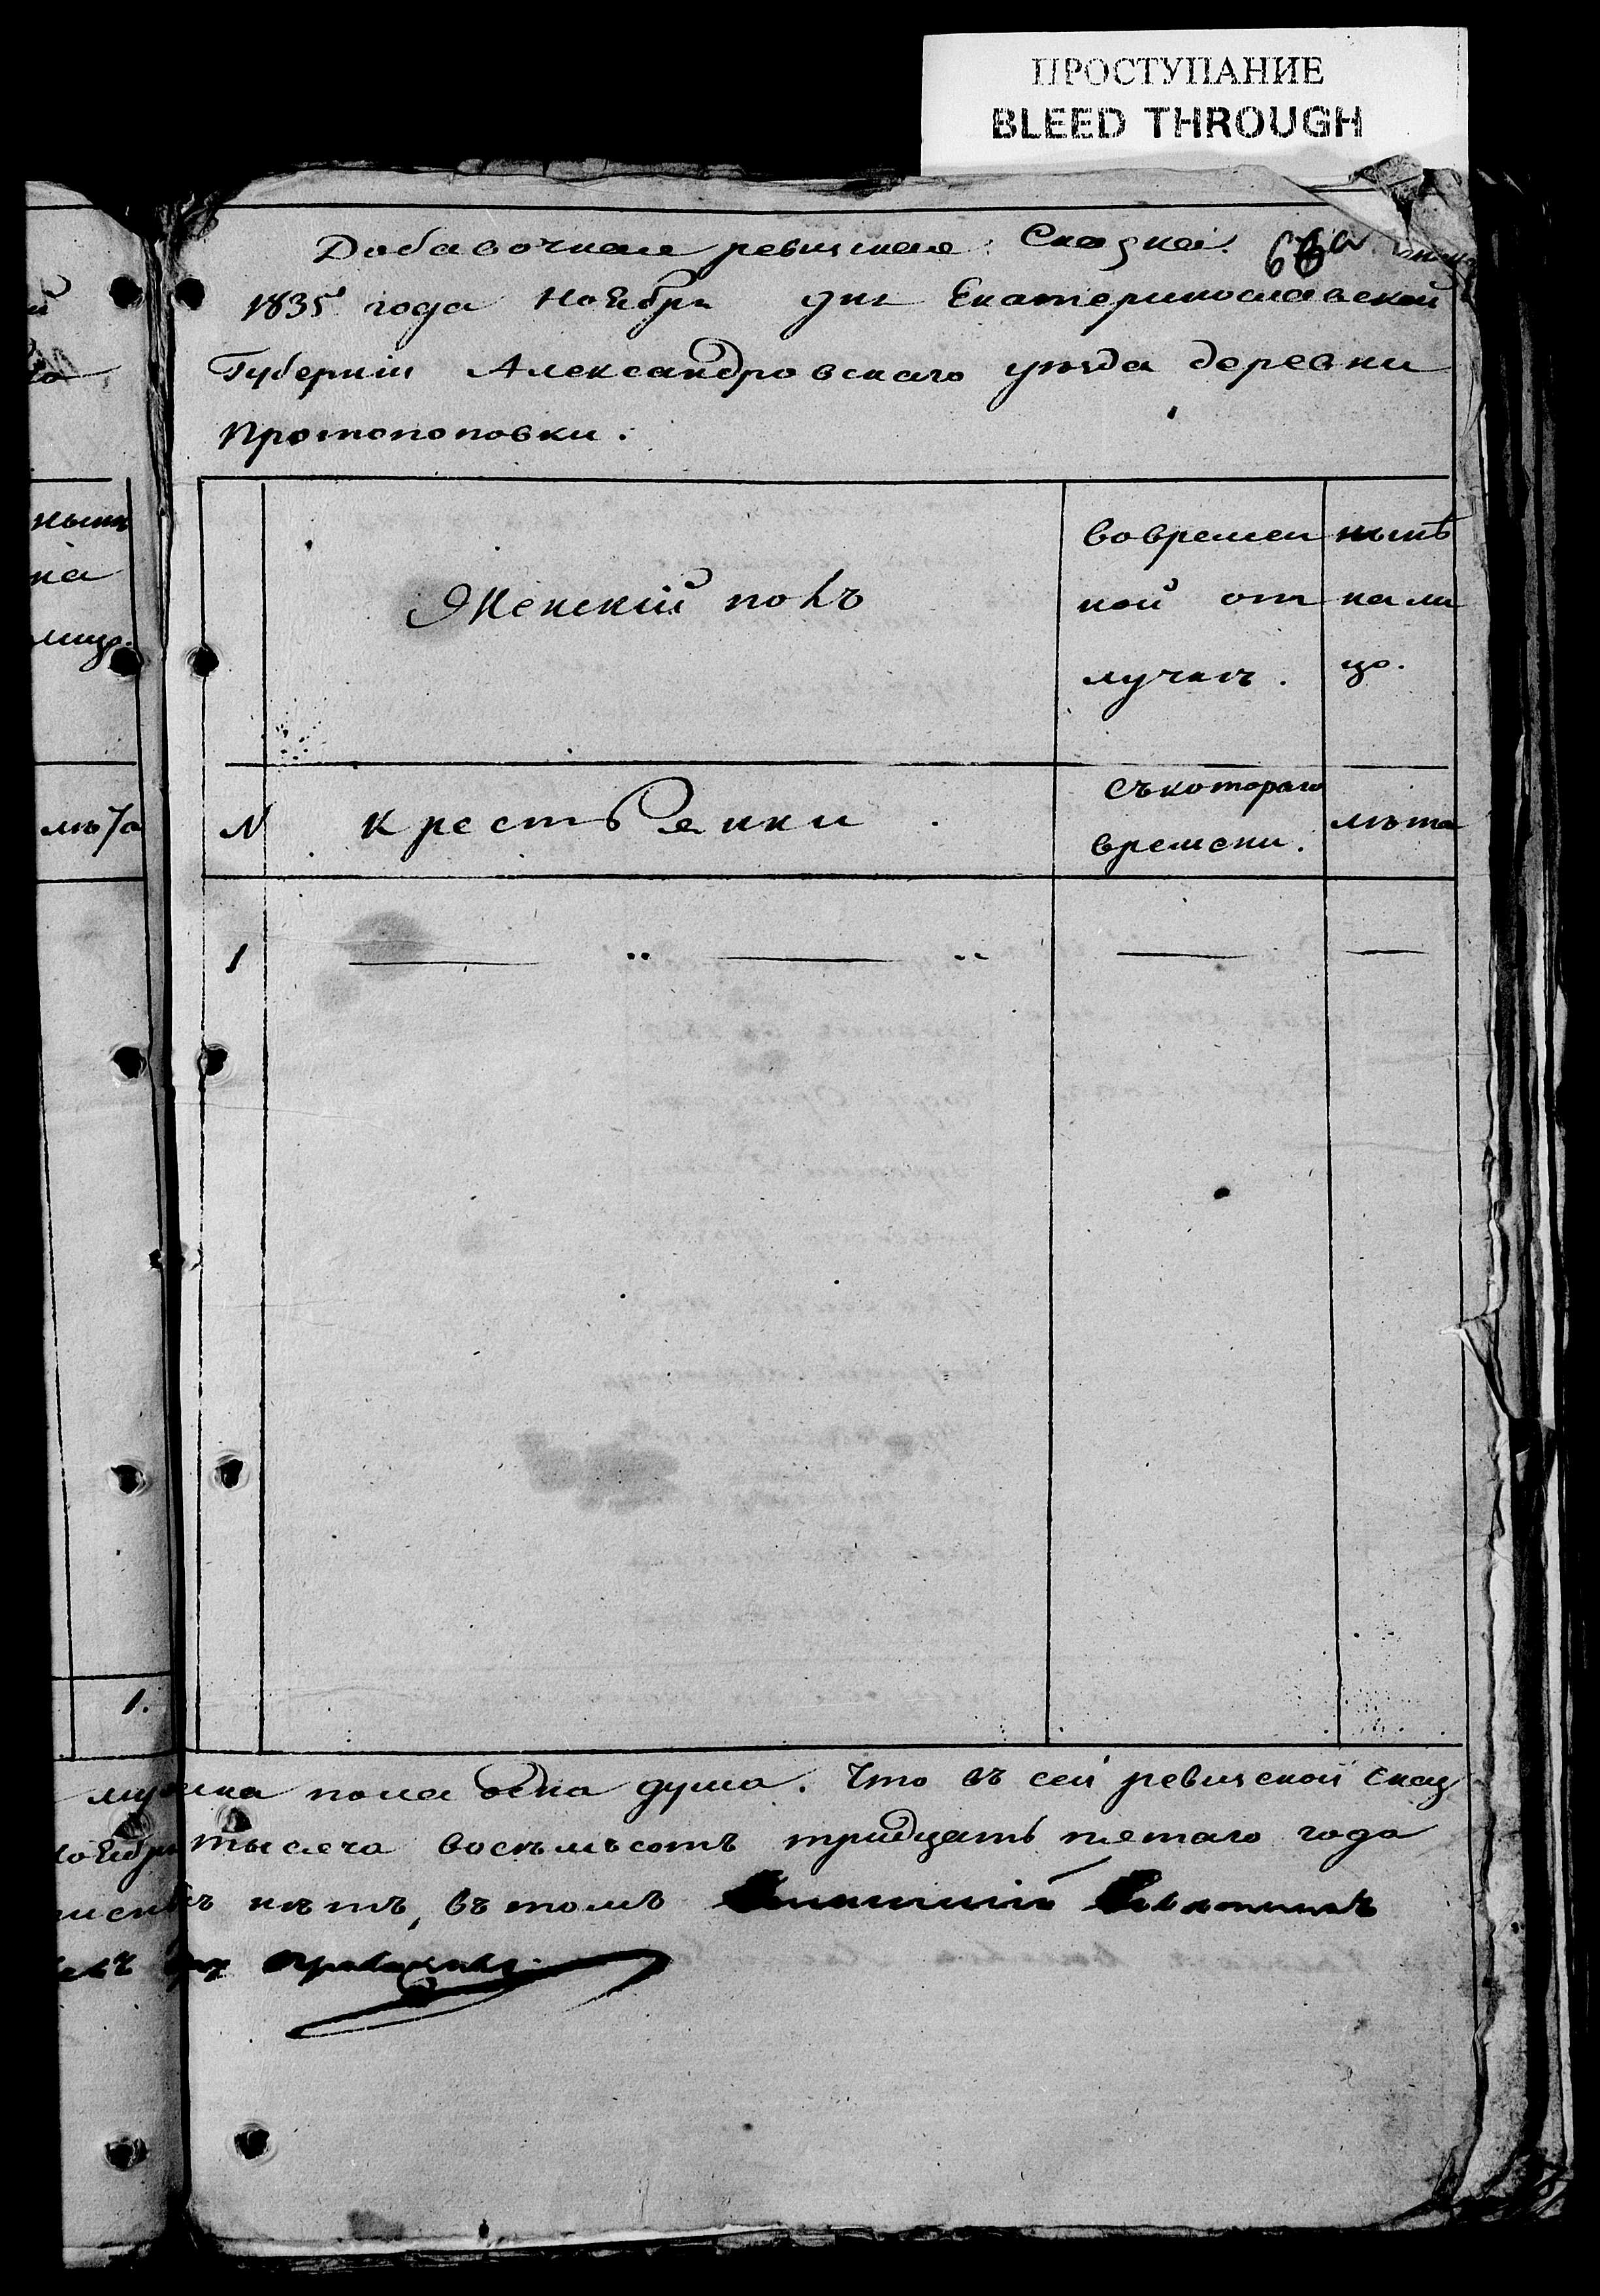 ПРОСТУПАНИЕ
BLEED THROUGH
Добавочная ревизская Сказка. 66
1835 года Ноября дня Екатеринославской
Губернiи Александровскаго уезда деревни
Протопоповки.
Женскiй полъ
вовремен
ной от
лучкъ.
нынѣ
на ли
цо.
N крестьянки.
съкотораго
времени.
лѣта
1
ныхъ
на
лицо.
лѣта
1.
мужска пола одна душа. Что въ сей ревизской сказ
Ноября тысяча восемьсотъ тридцать пятаго года
нѣтъ, въ томъ